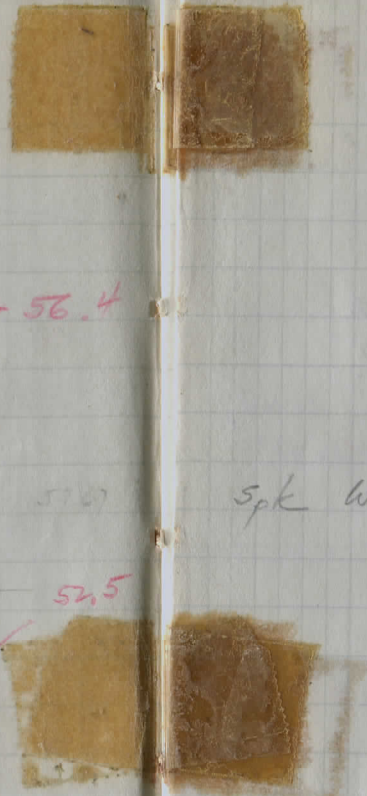 - 56.4
Spk
52.5